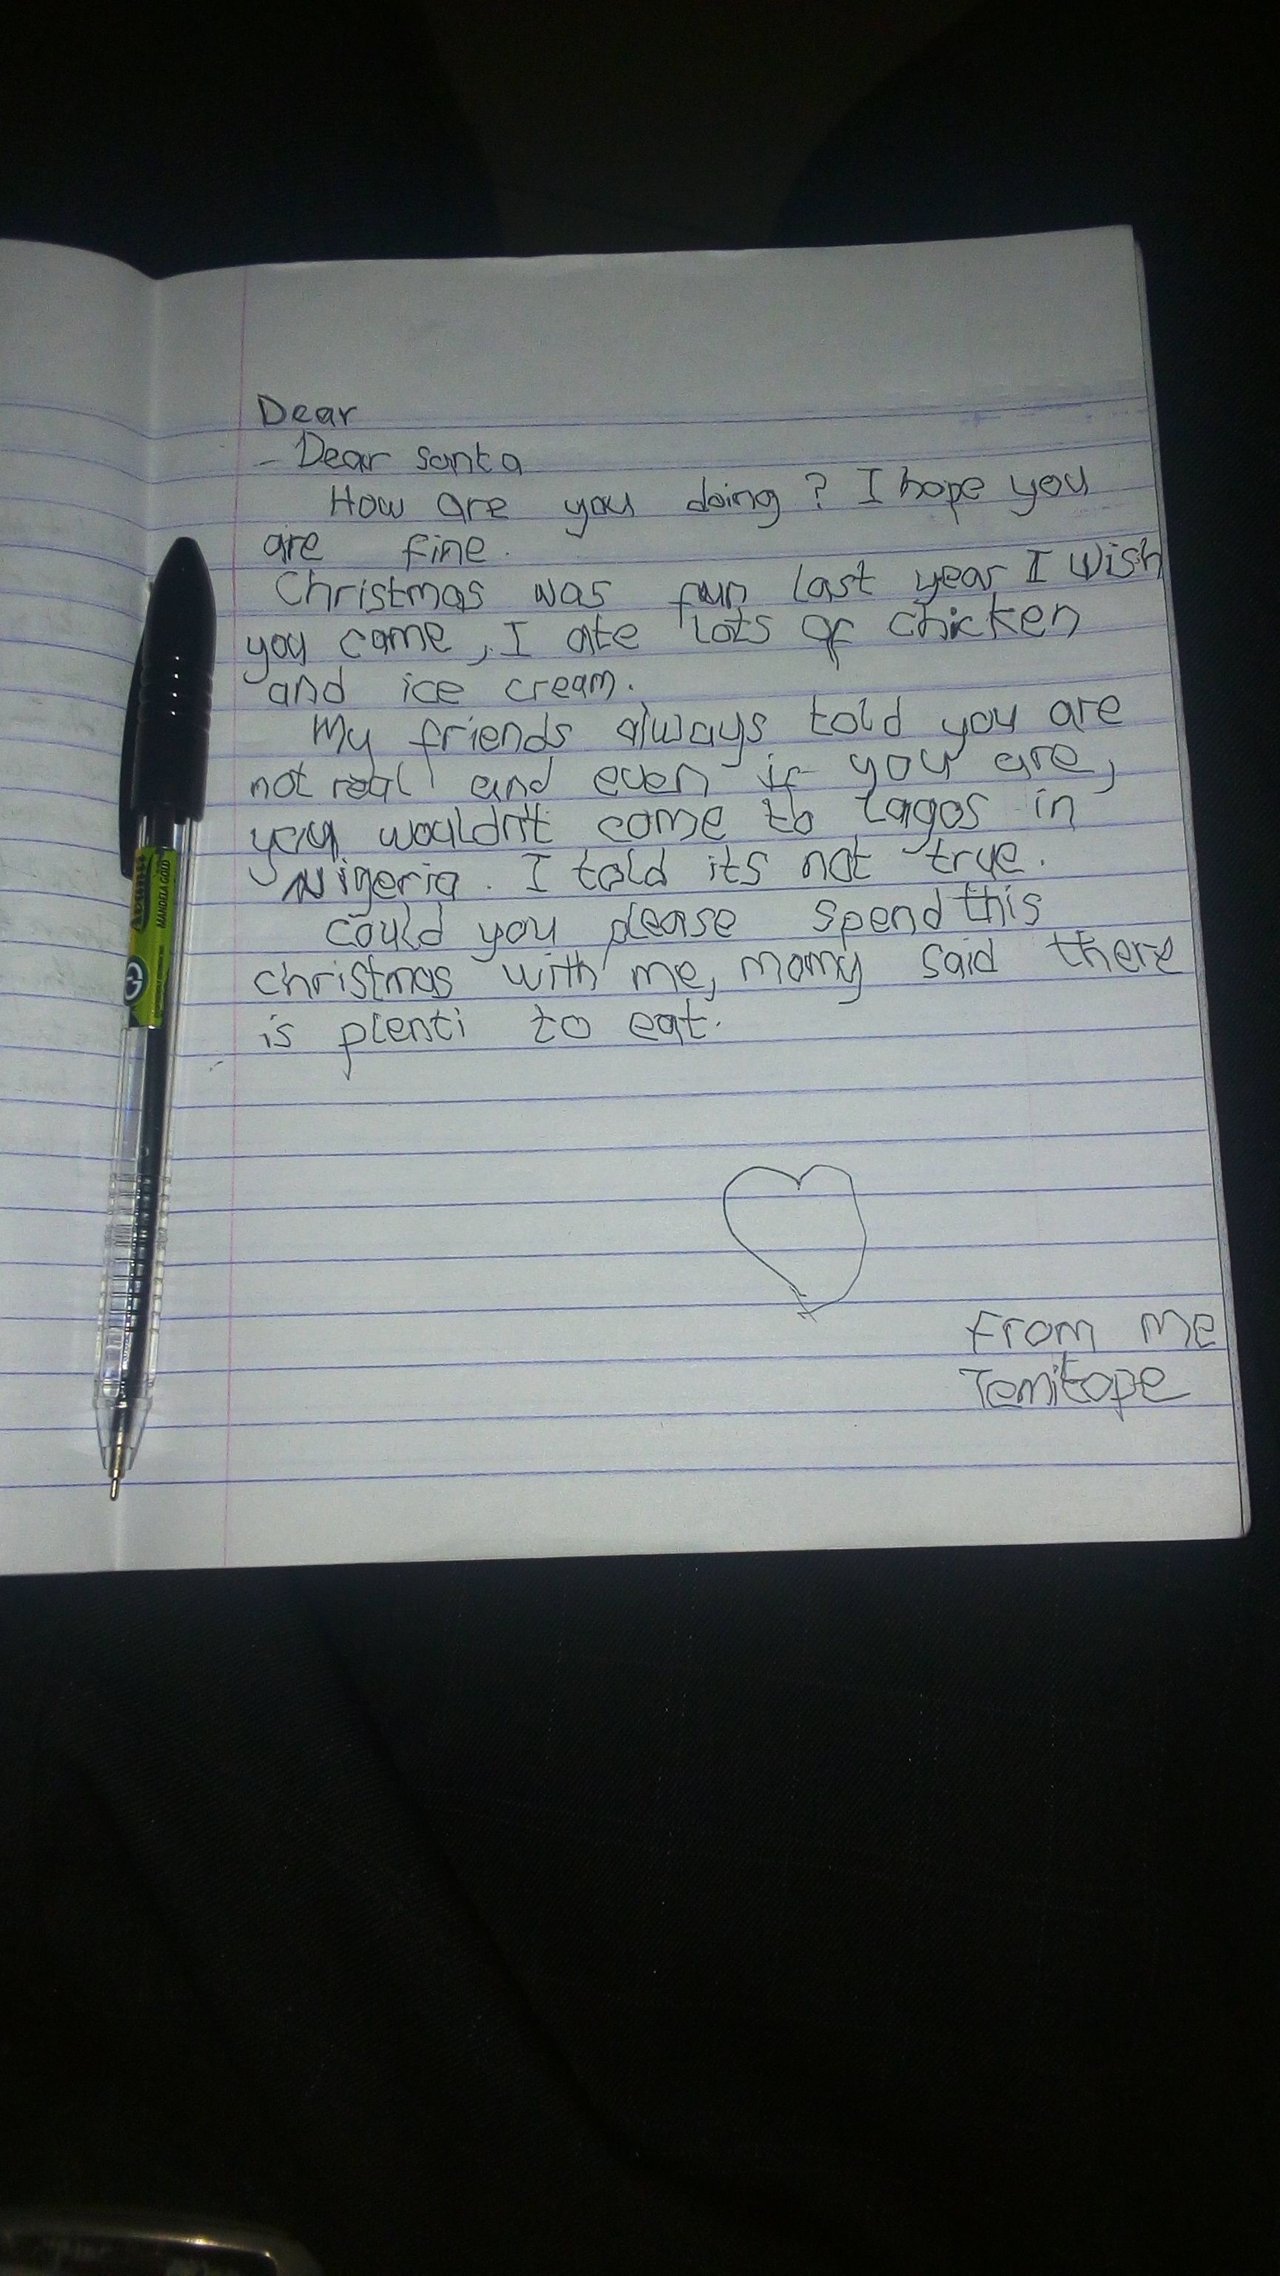 Dear
- Dear Santa
How are you doing? I hope you
are fine.
Christmas was fun last year I wish
you came, I ate lots of chicken
and ice cream.
My friends always told you are
not real and even if you are,
you wouldn't come to Lagos in
Nigeria. I told its not true.
Could you please spend this
christmas with me, momy said there
is plenti to eat.
From me
Temitope
MANDELA GOLD